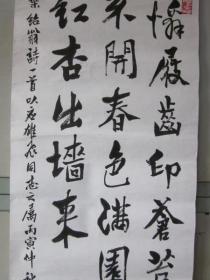 憐屐齒印蒼苔
不開春色滿園
紅杏出墻來
葉紹翁詩一首以應雄飛同志之屬丙寅仲秋